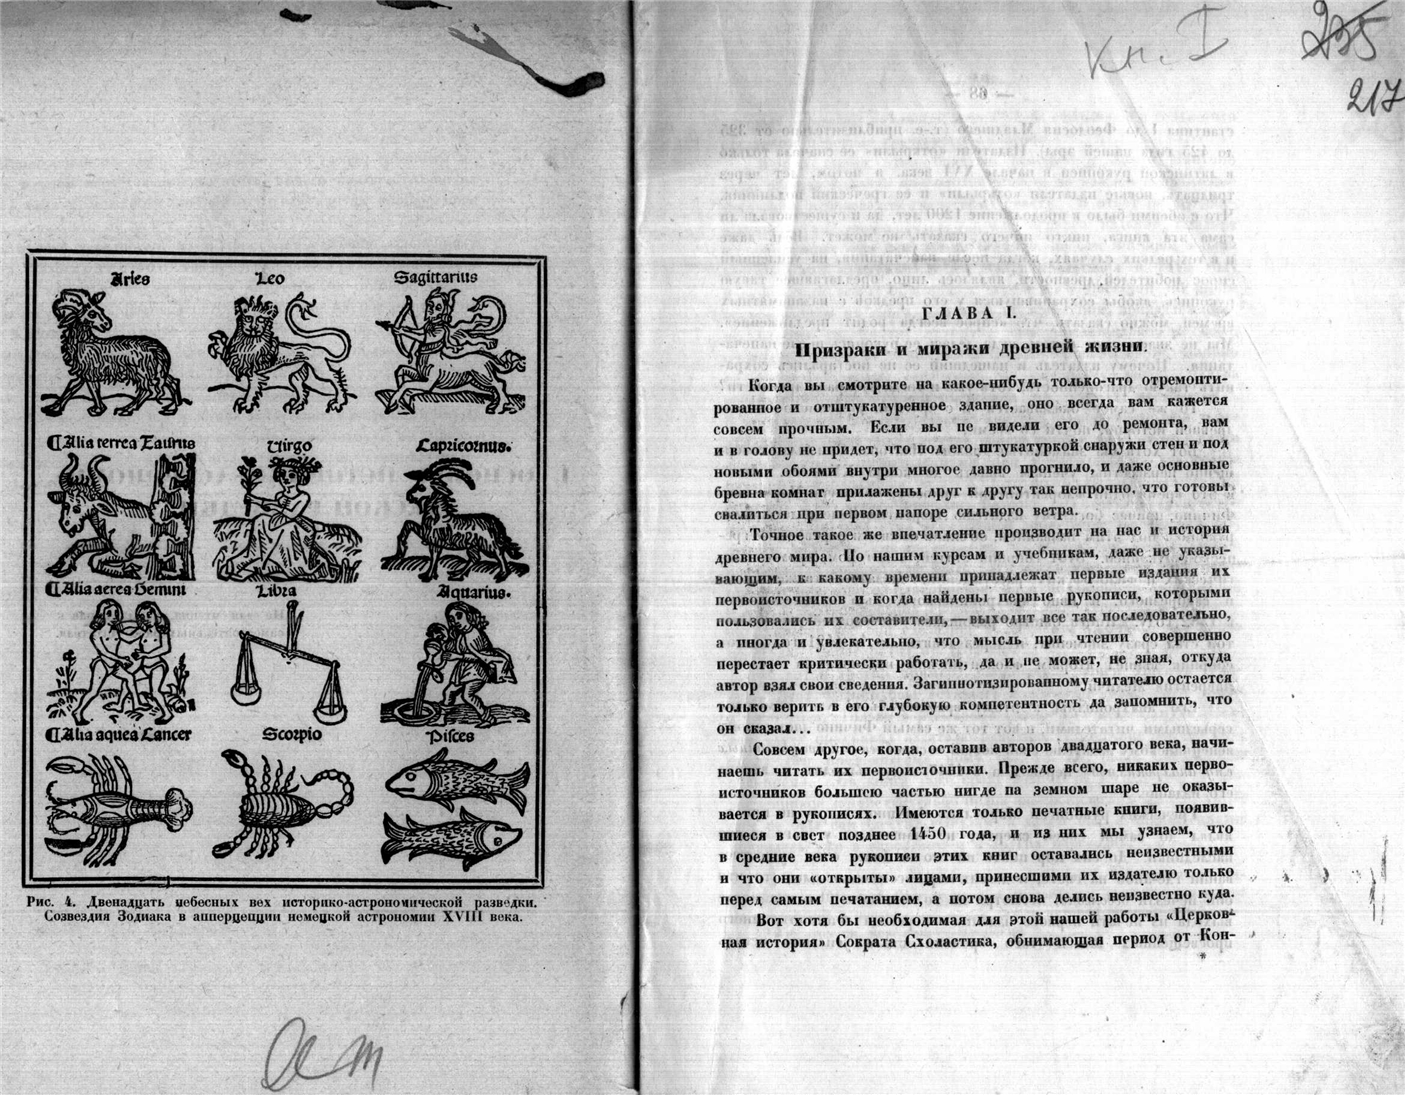 Aries Leo Sagittarius
Alia terrea Taurus Virgo Capricornus.
Alia aerea Gemini Libra Aquarius.
Alia aquea Cancer Scorpio Pisces
Рис. 4. Двенадцать небесных вех историко-астрономической разведки.
Созвездия Зодиака в апперцепции немецкой астрономии XVIII века.
кн. I
235
217
ГЛАВА I.
Призраки и миражи древней жизни.
Когда вы смотрите на какое-нибудь только-что отремонти-
рованное и отштукатуренное здание, оно всегда вам кажется
совсем прочным. Если вы не видели его до ремонта, вам
и в голову не придет, что под его штукатуркой снаружи стен и под
новыми обоями внутри многое давно прогнило, и даже основные
бревна комнат прилажены друг к другу так непрочно, что готовы
свалиться при первом напоре сильного ветра.
Точное такое же впечатление производит на нас и история
древнего мира. По нашим курсам и учебникам, даже не указы-
вающим, к какому времени принадлежат первые издания их
первоисточников и когда найдены первые рукописи, которыми
пользовались их составители,—выходит все так последовательно,
а иногда и увлекательно, что мысль при чтении совершенно
перестает критически работать, да и не может, не зная, откуда
автор взял свои сведения. Загипнотизированному читателю остается
только верить в его глубокую компетентность да запомнить, что
он сказал...
Совсем другое, когда, оставив авторов двадцатого века, начи-
наешь читать их первоисточники. Прежде всего, никаких перво-
источников большею частью нигде на земном шаре не оказы-
вается в рукописях. Имеются только печатные книги, появив-
шиеся в свет позднее 1450 года, и из них мы узнаем, что
в средние века рукописи этих книг оставались неизвестными
и что они «открыты» лицами, принесшими их издателю только
перед самым печатанием, а потом снова делись неизвестно куда.
Вот хотя бы необходимая для этой нашей работы «Церков-
ная история» Сократа Схоластика, обнимающая период от Кон-